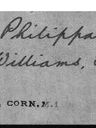 Philippa
Williams,
CORN. M.1